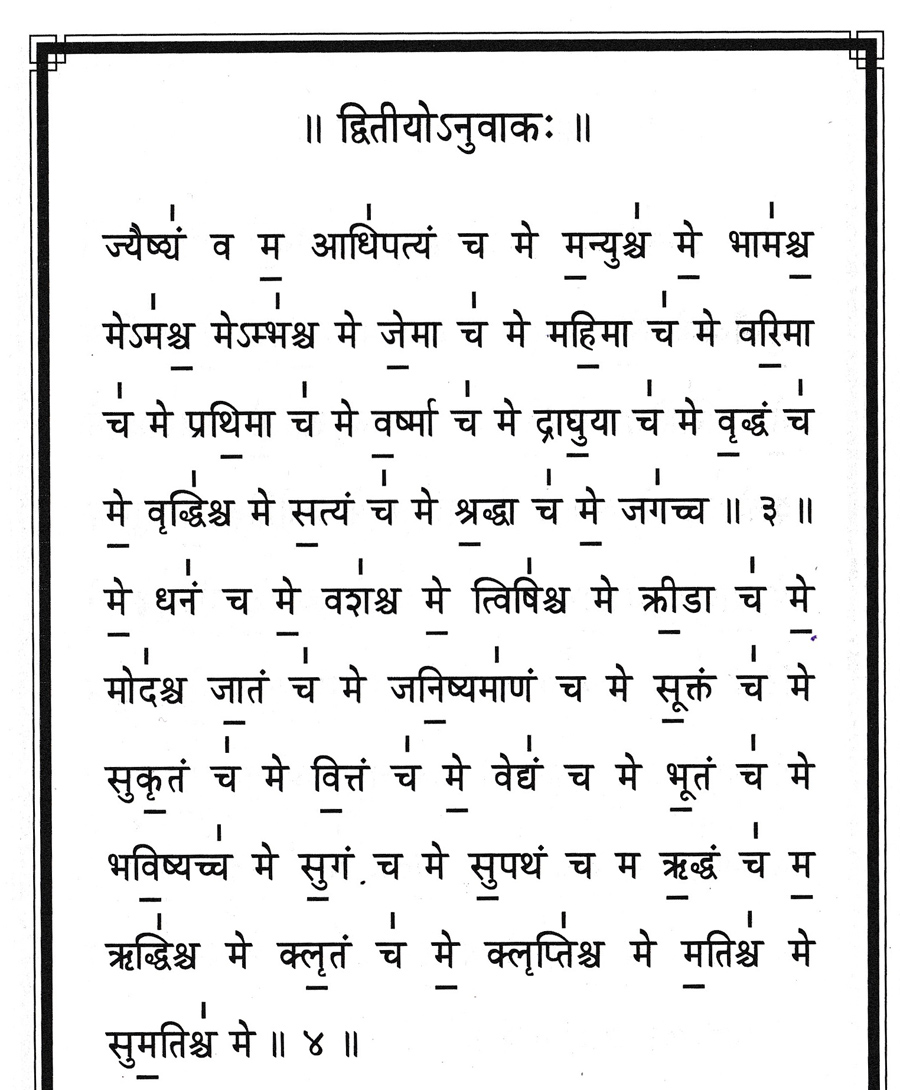 ॥ द्वितीयोऽनुवाकः ॥
ज्यैष्ठ्यं॑ व म॒ आधि॑पत्यं च मे म॒न्युश्च॑ मे॒ भाम॑श्च॒
मेऽम॑श्च॒ मेऽम्भ॑श्च मे जे॒मा च॑ मे महि॒मा च॑ मे वरि॒मा
च॑ मे प्रथि॒मा च॑ मे व॒र्ष्मा च॑ मे द्राघु॒या च॑ मे वृ॒द्धं च॑
मे॒ वृद्धि॑श्च मे स॒त्यं च॑ मे श्र॒द्धा च॑ मे॒ जग॑च्च ॥ ३ ॥
मे॒ धनं॑ च मे॒ वश॑श्च मे॒ त्विषि॑श्च मे क्री॒डा च॑ मे॒
मोद॑श्च जा॒तं च॑ मे जनि॒ष्यमा॑णं च मे सू॒क्तं च॑ मे
सुकृ॒तं च॑ मे वि॒त्तं च॑ मे॒ वेद्यं॑ च मे भू॒तं च॑ मे
भवि॒ष्यच्च॑ मे सु॒गं च मे सु॒पथं च म ऋ॒द्धं च॑ म॒
ऋद्धि॑श्च मे क्लृ॒तं च॑ मे॒ क्लृप्ति॑श्च मे म॒तिश्च॑ मे
सुम॒तिश्च॑ मे ॥ ४ ॥